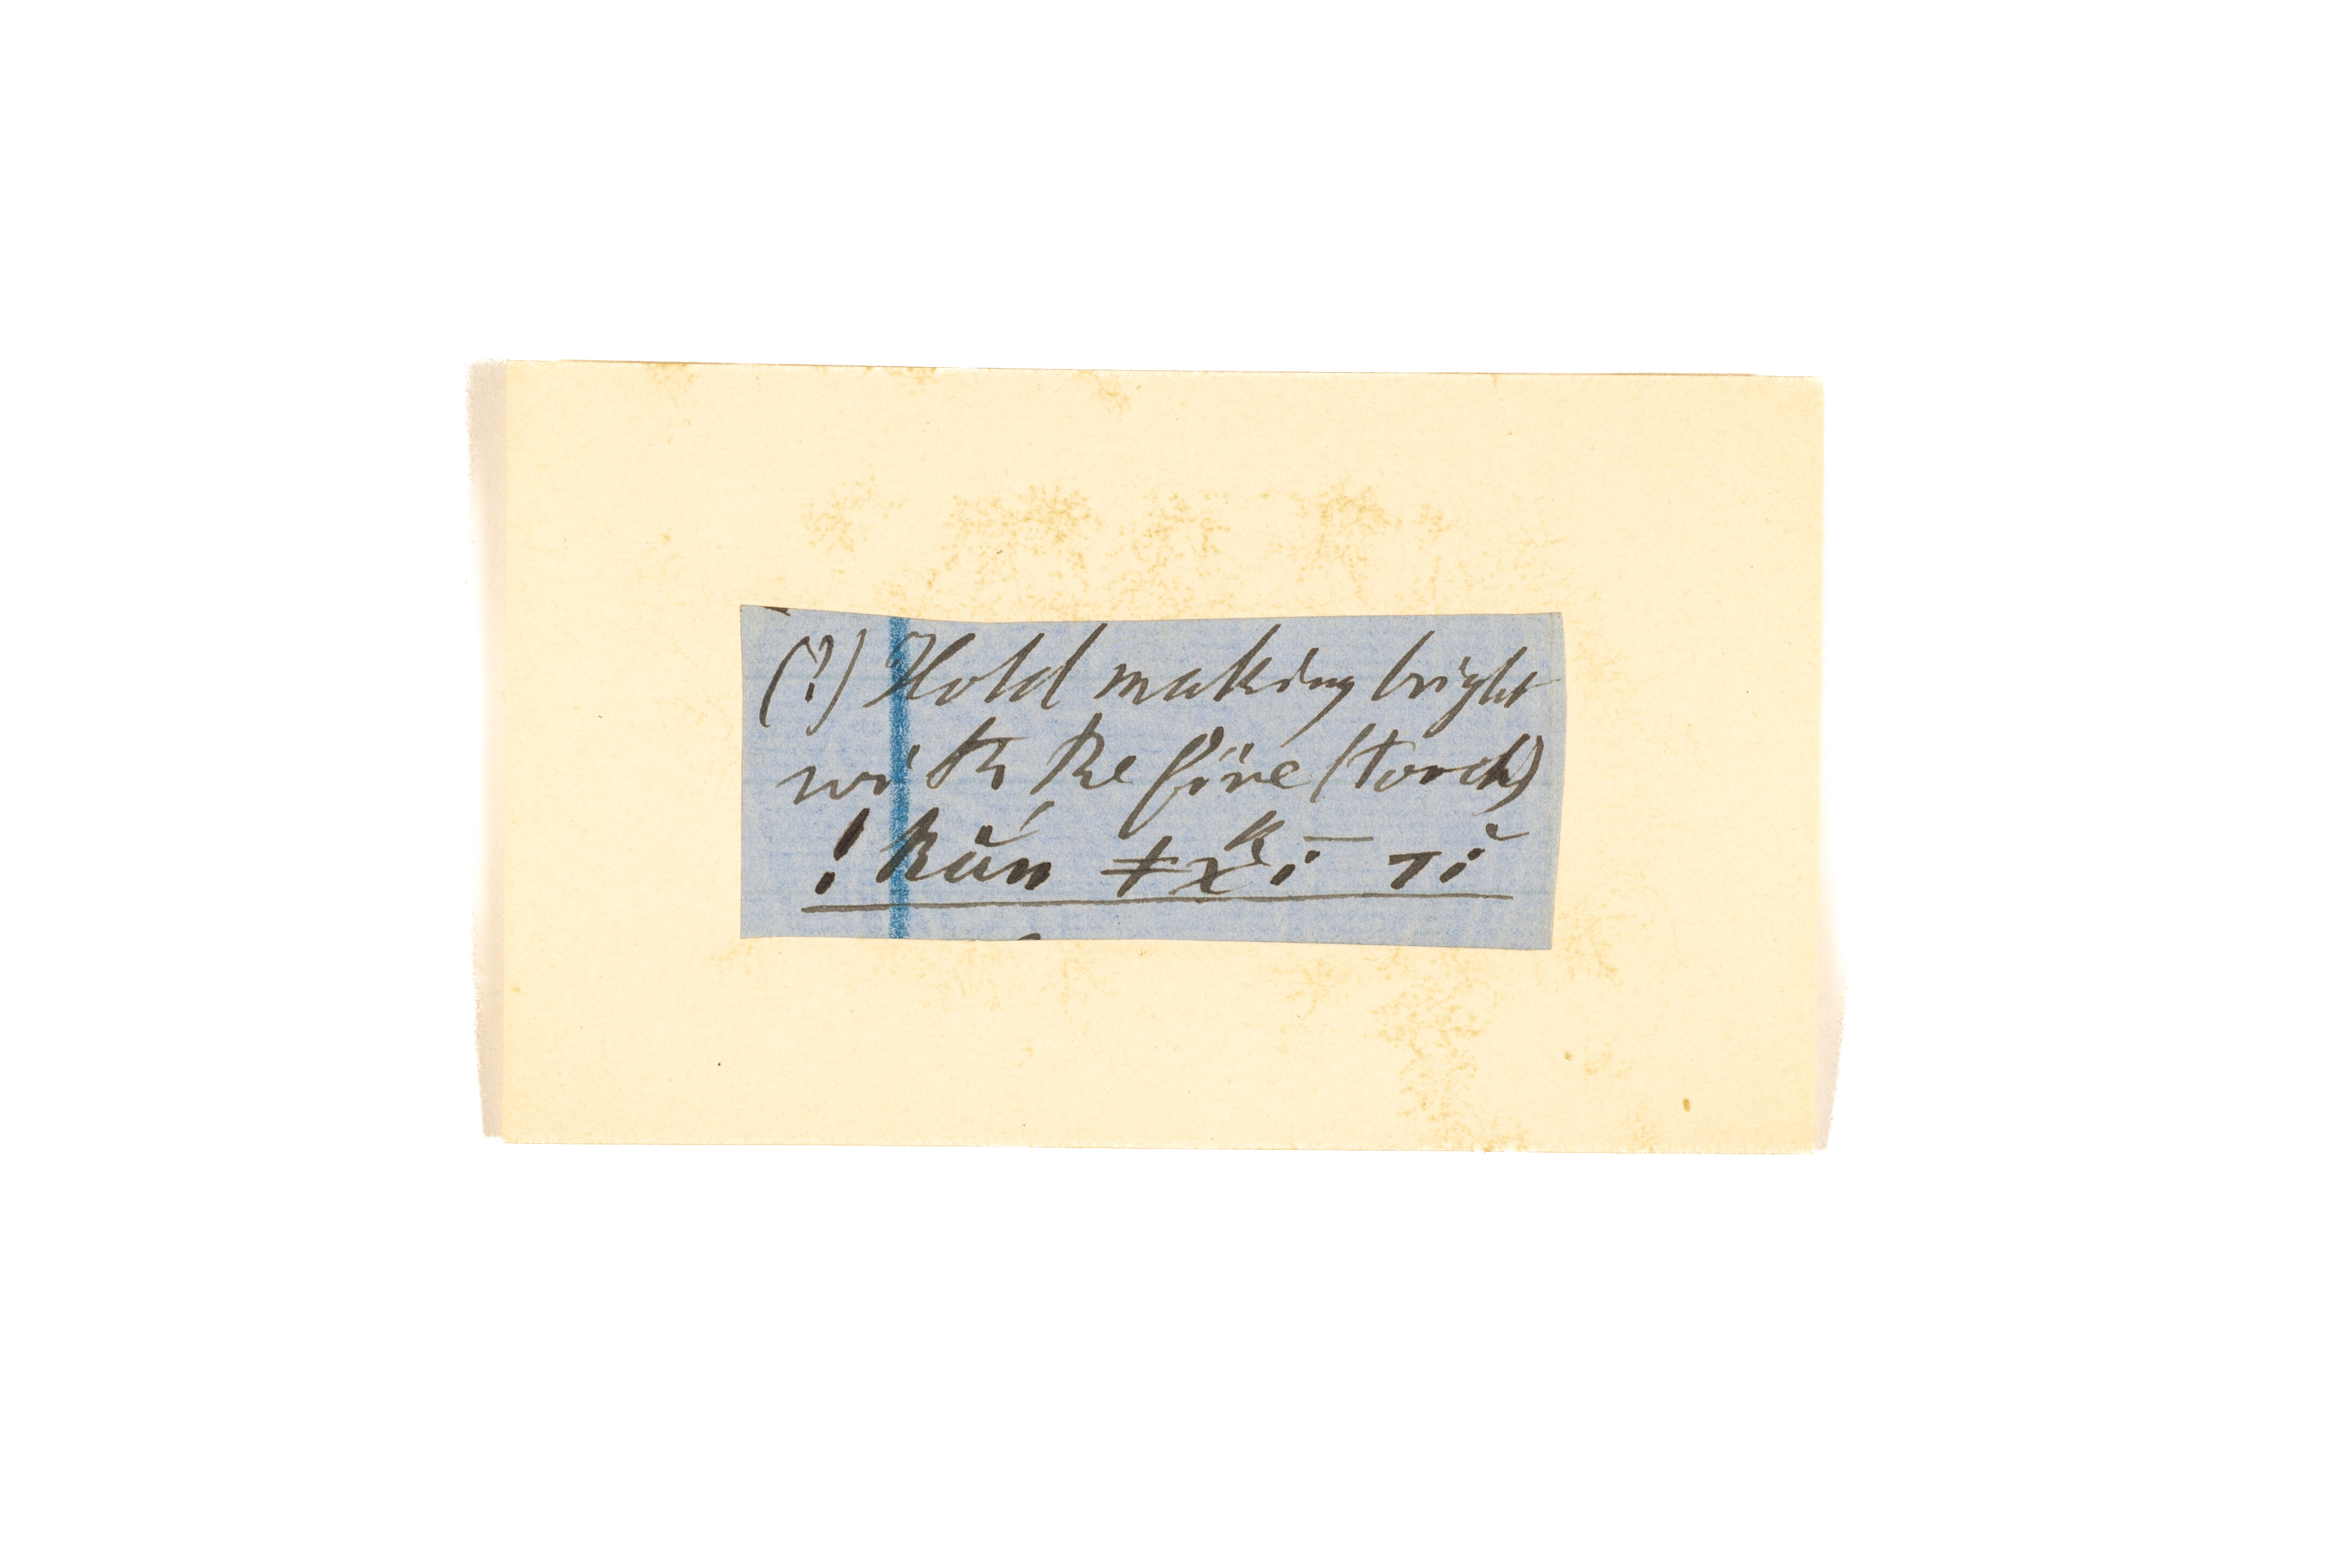 (?) Hold making bright
with the fire (torch)
! kǔń ǂχᵏī τĭ